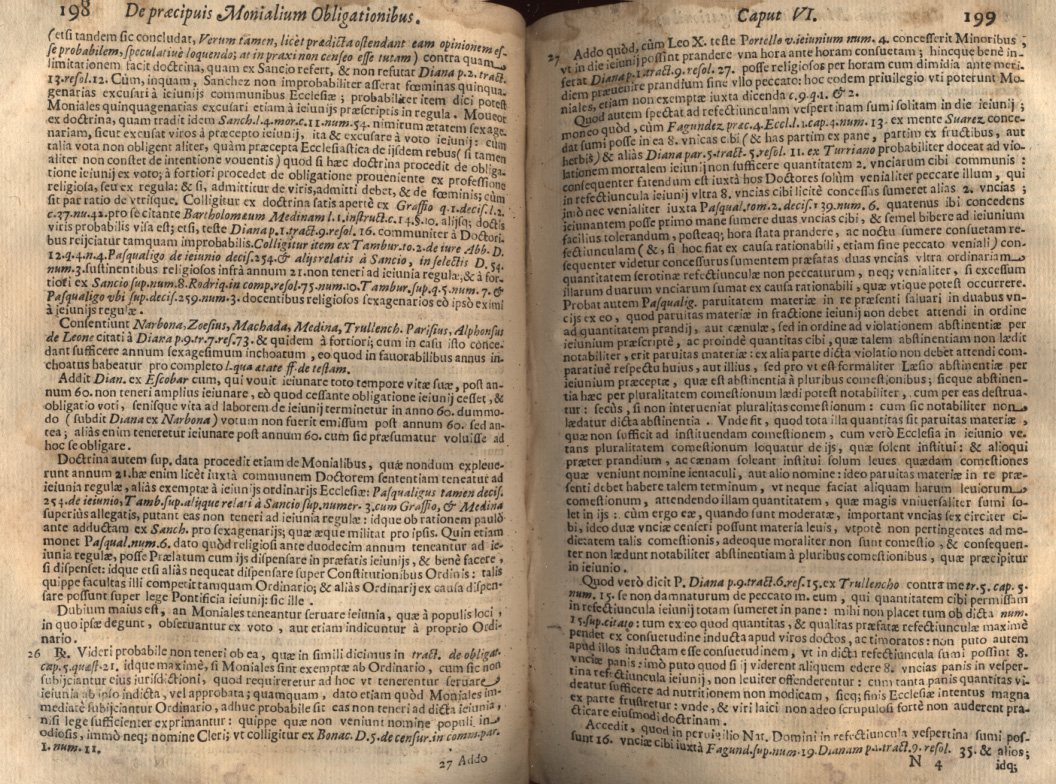 198 De præcipuis Monialium Obligationibus.
(etsi tandem sic concludat, Verum tamen, licèt prædicta ostendant eam opinionem es-
se probabilem, speculatiuè loquendo; at in praxi non censeo esse tutam) contra quam
limitationem facit doctrina, quam ex Sancio refert, & non refutat Diana p.2. tract.
13.resol.12. Cùm, inquam, Sanchez non improbabiliter asserat fœminas quinqua-
genarias excusari à ieiunijs communibus Ecclesiæ; probabiliter item dici potest
Moniales quinquagenarias excusari etiam à ieiunijs præscriptis in regula. Moueor
ex doctrina, quam tradit idem Sanch.l.4.mor.c.11.num.54. nimirum ætatem sexage-
nariam, sicut excusat viros à præcepto ieiunij, ita & excusare à voto ieiunij: cùm
talia vota non obligent aliter, quàm præcepta Ecclesiastica de ijsdem rebus (si tamen
aliter non constet de intentione vouentis) quod si hæc doctrina procedit de obliga-
tione ieiunij ex voto; à fortiori procedet de obligatione proueniente ex professione
religiosa, seu ex regula: & si, admittitur de viris, admitti debet, & de fœminis; cùm
sit par ratio de vtrisque. Colligitur ex doctrina satis apertè ex Graffio q.1.decis.l.2.
c.37.nu.42.pro se citante Bartholomæum Medinam l.1.instruct.c.14.§.10. alijsq; doctis
viris probabilis visa est; etsi, teste Diana p.1.tract.9.resol.16. communiter à Doctori-
bus reijciatur tamquam improbabilis. Colligitur item ex Tambur.to.2.de iure Abb.D.
12.q.4.n.4.Pasqualigo de ieiunio decis.254.& alijs relatis à Sancio, in selectis D. 54.
num.3.sustinentibus religiosos infrà annum 21.non teneri ad ieiunia regulæ, & à for-
tiori ex Sancio sup.num.8.Rodriq.in comp.resol.75.num.10.Tambur.sup.q.5.num.7. &
Pasqualigo vbi sup.decis.259.num.3. docentibus religiosos sexagenarios eò ipsò eximi
à ieiunijs regulæ.
Consentiunt Narbona, Zoesius, Machada, Medina, Trullench. Parisius, Alphonsus
de Leone citati à Diana p.9.tr.7.res.73. & quidem à fortiori; cum in casu isto conce-
dant sufficere annum sexagesimum inchoatum, eo quod in fauorabilibus annus in-
choatus habeatur pro completo l.qua ætate ff.de testam.
Addit Dian. ex Escobar cum, qui vouit ieiunare toto tempore vitæ suæ, post an-
num 60. non teneri amplius ieiunare, eò quod cessante obligatione ieiunij cesset, &
obligatio voti, senisque vita ad laborem de ieiunij terminetur in anno 60. dummo-
do (subdit Diana ex Narbona) votum non fuerit emissum post annum 60. sed an-
tea; aliàs enim teneretur ieiunare post annum 60. cum sic præsumatur voluisse ad
hoc se obligare.
Doctrina autem sup. data procedit etiam de Monialibus, quæ nondum expleue-
runt annum 21. hæ enim licèt iuxtà communem Doctorem sententiam teneantur ad
ieiunia regulæ, aliàs exemptæ à ieiunijs ordinarijs Ecclesiæ: Pasqualigus tamen decis.
254.de ieiunio, Tamb.sup.alijque relati à Sancio sup.numer. 3.cum Graffio, & Medina
superiùs allegatis, putant eas non teneri ad ieiunia regulæ: idque ob rationem paulò
ante adductam ex Sanch. pro sexagenarijs; quæ æque militat pro ipsis. Quin etiam
monet Pasqual.num.6. dato quòd religiosi ante duodecim annum teneantur ad ie-
iunia regulæ, posse Prælatum cum ijs dispensare in præfatis ieiunijs, & benè facere,
si dispenset: idque etsi aliàs nequeat dispensare super Constitutionibus Ordinis: talis
quippe facultas illi competit tamquam Ordinario; & aliàs Ordinarij ex causa dispen-
sare possunt super lege Pontificia ieiunij: sic ille.
Dubium maius est, an Moniales teneantur seruare ieiunia, quæ à populis loci,
in quo ipsæ degunt, obseruantur ex voto, aut etiam indicuntur à proprio Ordi-
nario.
26 ℞. Videri probabile non teneri ob ea, quæ in simili dicimus in tract. de obligat.
cap.5.quæst.21. idque maximè, si Moniales sint exemptæ ab Ordinario, cum sic non
subijciantur eius iurisdictioni, quod requireretur ad hoc vt tenerentur seruare
ieiunia ab ipso indicta, vel approbata; quamquam, dato etiam quòd Moniales im-
mediatè subijciantur Ordinario, adhuc probabile sit eas non teneri ad dicta ieiunia,
nisi lege sufficienter exprimantur: quippe quæ non veniunt nomine populi in
odiosis, immò neq; nomine Cleri; vt colligitur ex Bonac. D.5.de censur.in comm.par.
1. num. 11.
27 Addo
Caput VI. 199
27 Addo quòd, cùm Leo X. teste Portello v.ieiunium num. 4. concesserit Minoribus,
vt in die ieiunij possint prandere vna hora ante horam consuetam; hincque benè in-
ferat Diana p.1.tract.9.resol. 27. posse religiosos per horam cum dimidia ante meri-
diem præuenire prandium sine vllo peccato: hoc eodem priuilegio vti poterunt Mo-
niales, etiam non exemptæ iuxta dicenda c.9.q.1. & 2.
Quod autem spectat ad refectiunculam vespertinam sumi solitam in die ieiunij;
moneo quòd, cùm Fagundez præc.4.Eccl.l.1.cap.4.num. 13. ex mente Suarez conce-
dat sumi posse in ea 8. vncias cibi (& has partim ex pane, partim ex fructibus, aut
herbis) & aliàs Diana par.5.tract.5.resol. 11. ex Turriano probabiliter doceat ad vio-
lationem mortalem ieiunij non sufficere quantitatem 2. vnciarum cibi communis:
consequenter fatendum est iuxtà hos Doctores solùm venialiter peccare illum, qui
in refectiuncula ieiunij vltra 8. vncias cibi licitè concessas sumeret alias 2. vncias;
imò nec venialiter iuxta Pasqual.tom.2.decis.139.num.6. quatenus ibi concedens
ieiunantem posse primo mane sumere duas vncias cibi, & semel bibere ad ieiunium
facilius tolerandum, posteaq; hora stata prandere, ac noctu sumere consuetam re-
fectiunculam (&, si hoc fiat ex causa rationabili, etiam sine peccato veniali) con-
sequenter videtur concessurus sumentem præfatas duas vncias vltra ordinariam
quantitatem serotinæ refectiunculæ non peccaturum, neq; venialiter, si excessum
illarum duarum vnciarum sumat ex causa rationabili, quæ vtique potest occurrere.
Probat autem Pasqualig. paruitatem materiæ in re præsenti saluari in duabus vn-
cijs ex eo, quod paruitas materiæ in fractione ieiunij non debet attendi in ordine
ad quantitatem prandij, aut cænulæ, sed in ordine ad violationem abstinentiæ per
ieiunium præscriptæ, ac proindè quantitas cibi, quæ talem abstinentiam non lædit
notabiliter, erit paruitas materiæ: ex alia parte dicta violatio non debet attendi com-
paratiuè respectu huius, aut illius, sed pro vt est formaliter Læsio abstinentiæ per
ieiunium præceptæ, quæ est abstinentia à pluribus comestionibus; sicque abstinen-
tia hæc per pluralitatem comestionum lædi potest notabiliter, cum per eas destrua-
tur: secùs, si non interueniat pluralitas comestionum: cum sic notabiliter non
lædatur dicta abstinentia. Vnde fit, quod tota illa quantitas sit paruitas materiæ,
quæ non sufficit ad instituendam comestionem, cum verò Ecclesia in ieiunio ve-
tans pluralitatem comestionum loquatur de ijs, quæ solent institui: & alioqui
præter prandium, ac cænam soleant institui solum leues quædam comestiones
quæ veniunt nomine ientaculi, aut alio nomine: ideo paruitas materiæ in re præ-
senti debet habere talem terminum, vt neque faciat aliquam harum leuiorum
comestionum, attendendo illam quantitatem, quæ magis vniuersaliter sumi so-
let in ijs: cùm ergo eæ, quando sunt moderatæ, important vncias sex circiter ci-
bi, ideo duæ vnciæ censeri possunt materia leuis, vtpotè non pertingentes ad me-
dietatem talis comestionis, adeoque moraliter non sunt comestio, & consequen-
ter non lædunt notabiliter abstinentiam à pluribus comestionibus, quæ præcipitur
in ieiunio.
Quod verò dicit P. Diana p.9.tract.6.res.15.ex Trullencho contra me tr.5.cap.5.
num. 15. se non damnaturum de peccato m. eum, qui quantitatem cibi permissam
in refectiuncula ieiunij totam sumeret in pane: mihi non placet tum ob dicta num.
15.sup.citato: tum ex eo quod quantitas, & qualitas præfatæ refectiunculæ maximè
pendet ex consuetudine inducta apud viros doctos, ac timoratos: non puto autem
apud illos inductam esse consuetudinem, vt in dicta refectiuncula sumi possint 8.
vnciæ panis: imò puto quod si ij viderent aliquem edere 8. vncias panis in vesper-
tina refectiuncula ieiunij, non leuiter offenderentur: cum tanta panis quantitas vi-
deatur sufficere ad nutritionem non modicam, sicq; finis Ecclesiæ intentus magna
ex parte frustretur: vnde, & viri laici non adeo scrupulosi fortè non auderent pra-
cticare eiusmodi doctrinam.
Accedit, quod in peruigilio Nat. Domini in refectiuncula vespertina sumi pos-
sunt 16. vnciæ cibi iuxtà Fagund.sup.num.19.Dianam p.1.tract.9.resol. 35. & alios;
N 4 idq;